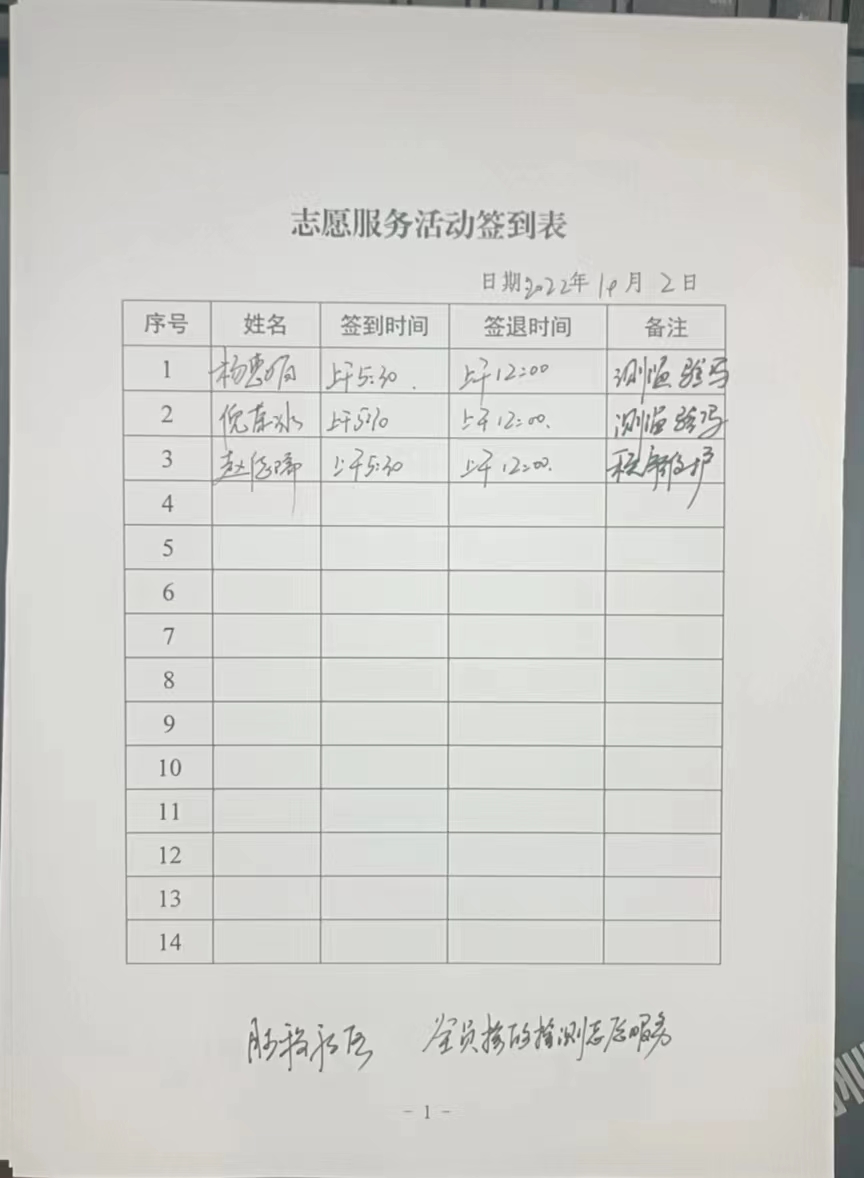 志愿服务活动签到表
日期2022年10月2日
序号 姓名 签到时间 签退时间 备注
1 杨惠 上午5:30. 上午12:00 测温 验码
2 倪 冰 上午5:30 上午12:00. 测温 验码
3 赵 上午5:30 上午12:00. 秩序维护
4
5
6
7
8
9
10
11
12
13
14
全员核酸检测志愿服务
- 1 -